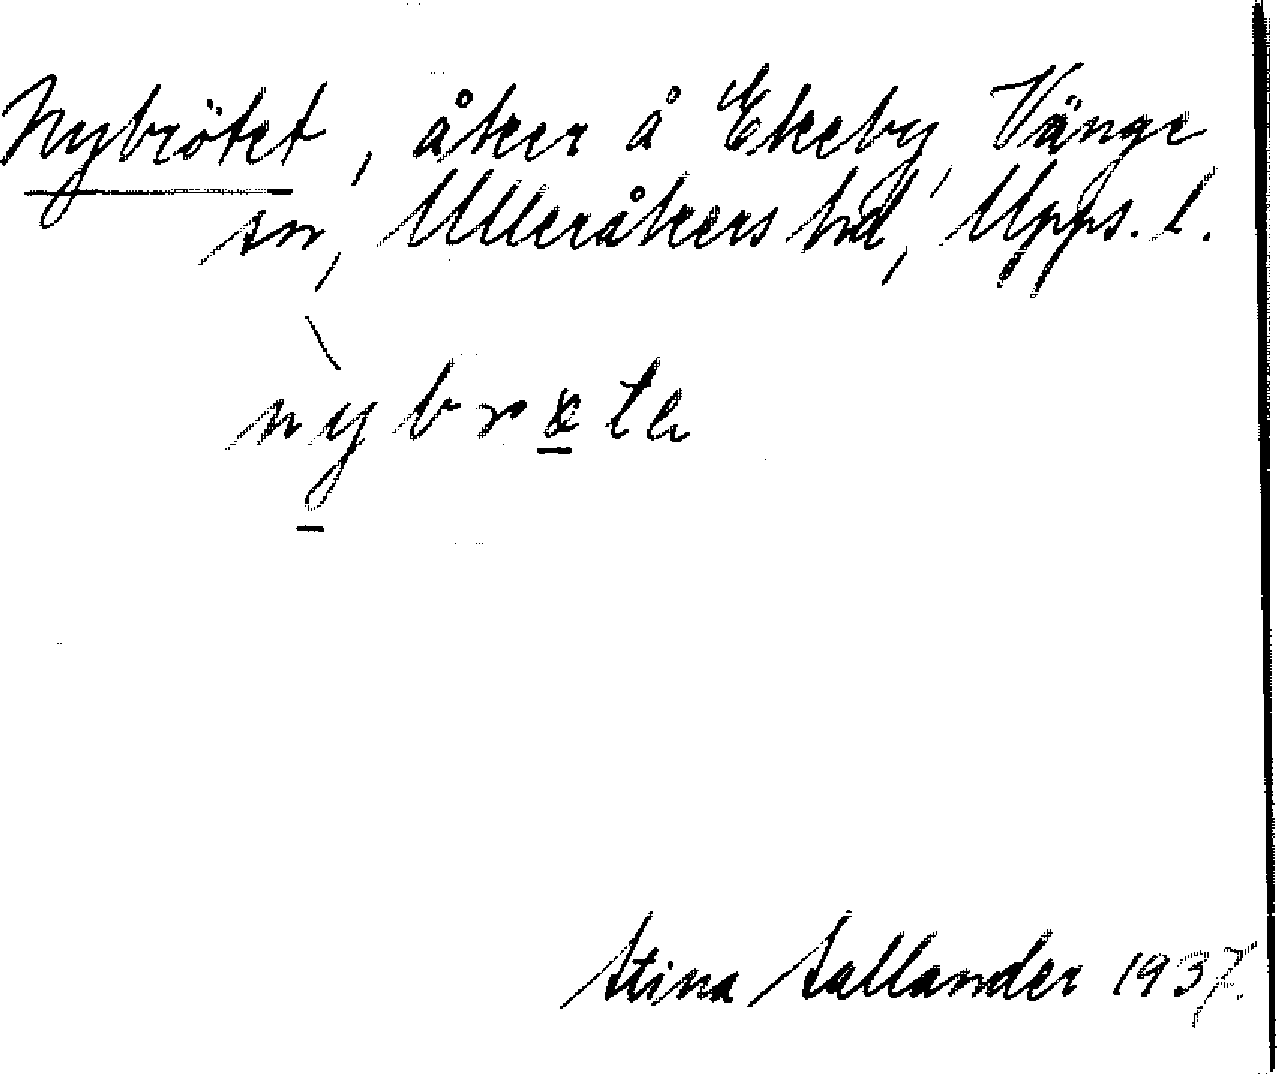 Nybrötet, åker å Ekeby, Vänge
sn, Ulleråkers hd, Upps. l.
nybrøte
Stina Sallander 1937.